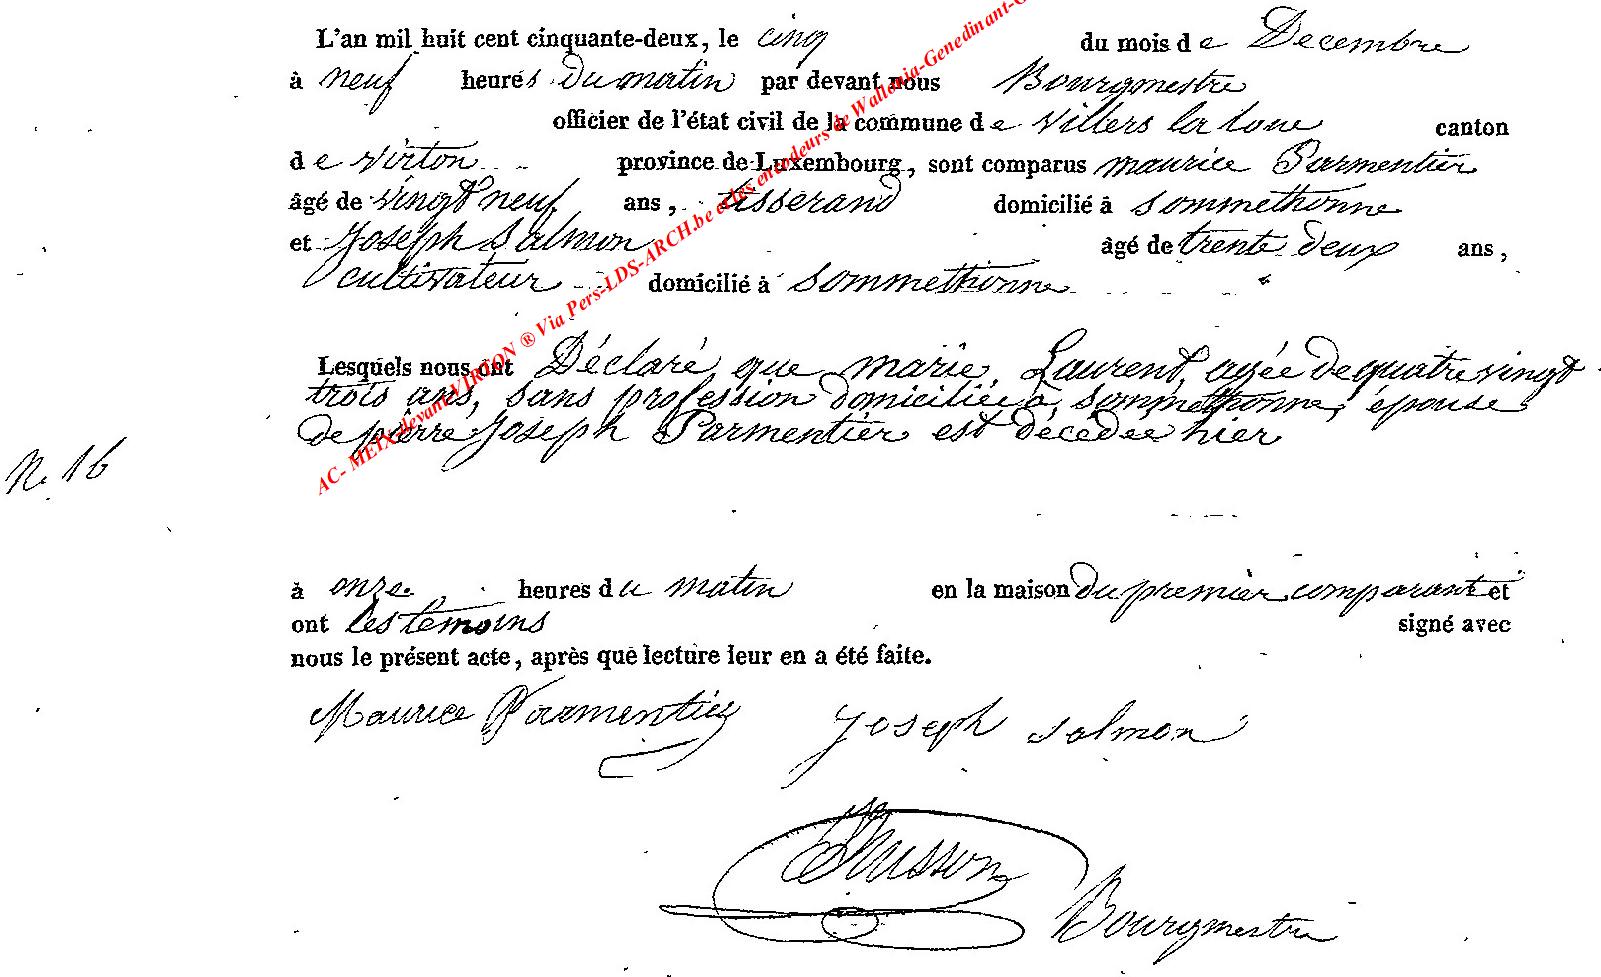 L'an mil huit cent cinquante-deux, le cinq du mois de Decembre
à neuf heures du matin par devant nous Bourgmestre
officier de l'état civil de la commune de Villers la loue canton
de virton province de Luxembourg, sont comparus maurice Parmentier
âgé de vingt neuf ans, tisserand domicilié à Sommethonne
et Joseph Salmon âgé de trente deux ans,
cultivateur domicilié à Sommethonne
Lesquels nous ont Déclaré que marie Laurent, agée de quatre vingt
trois ans, sans profession domiciliée à Sommethonne, épouse
de pierre Joseph Parmentier est décédée hier
N. 16
à onze heures du matin en la maison du premier comparant et
ont les temoins signé avec
nous le présent acte, après que lecture leur en a été faite.
Maurice Parmentier Joseph Salmon
Husson
Bourgmestre
AC- MEIX-devant-VIRTON ® Via Pers-LDS-ARCH.be et les encodeurs de Wallonia-Genedinant-G